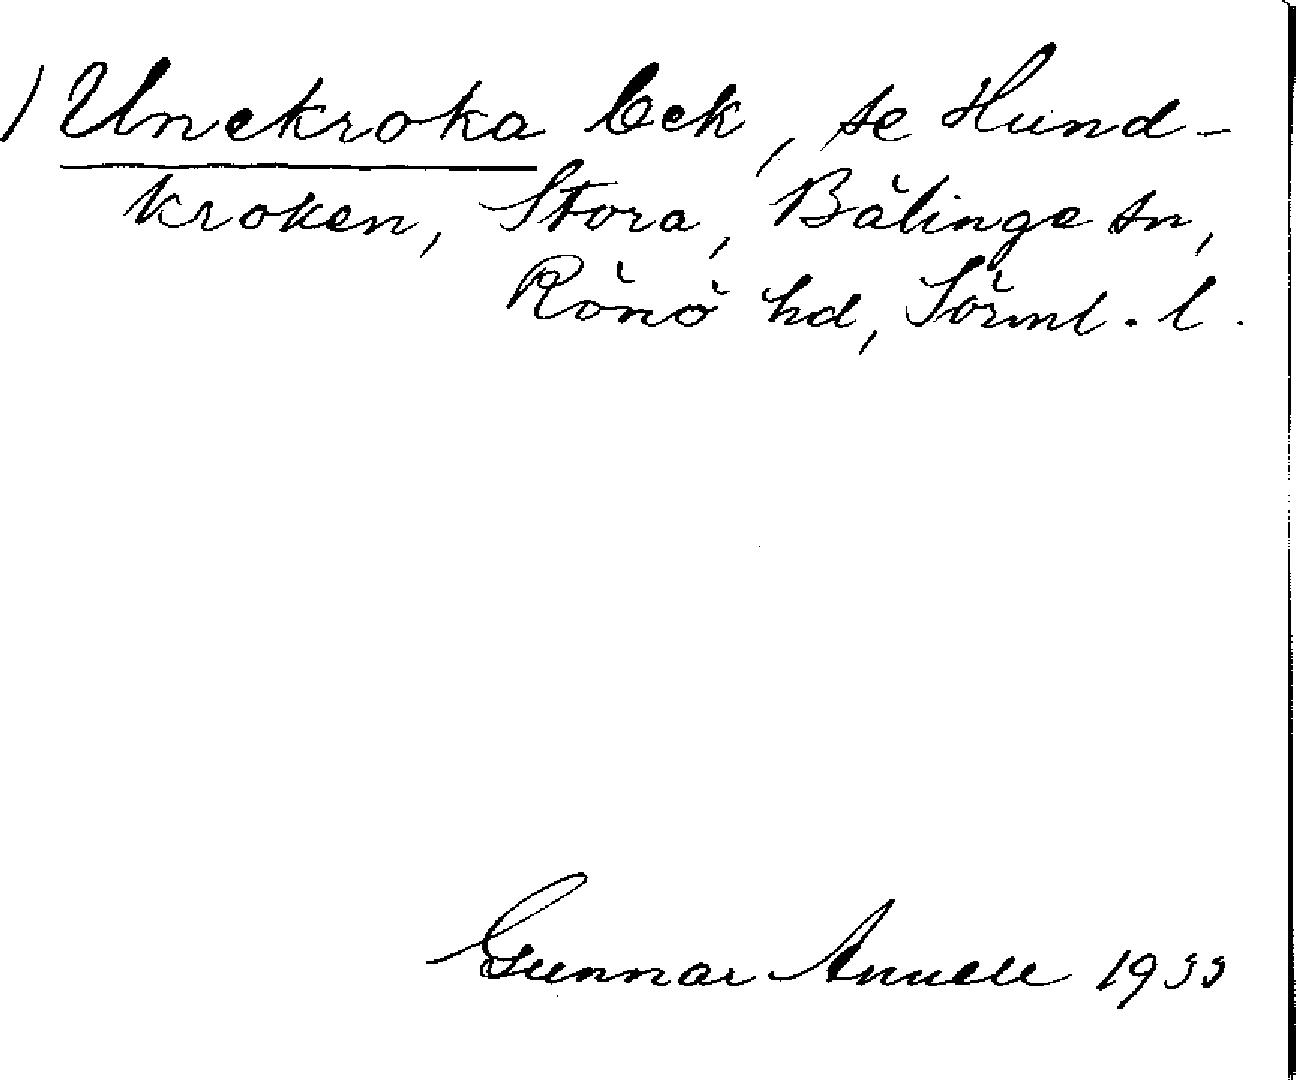 ) Unekroka Oek, se Hund-
kroken, Stora, Bälinge sn,
Rönö hd, Sörml. l.
Gunnar Annell 1933